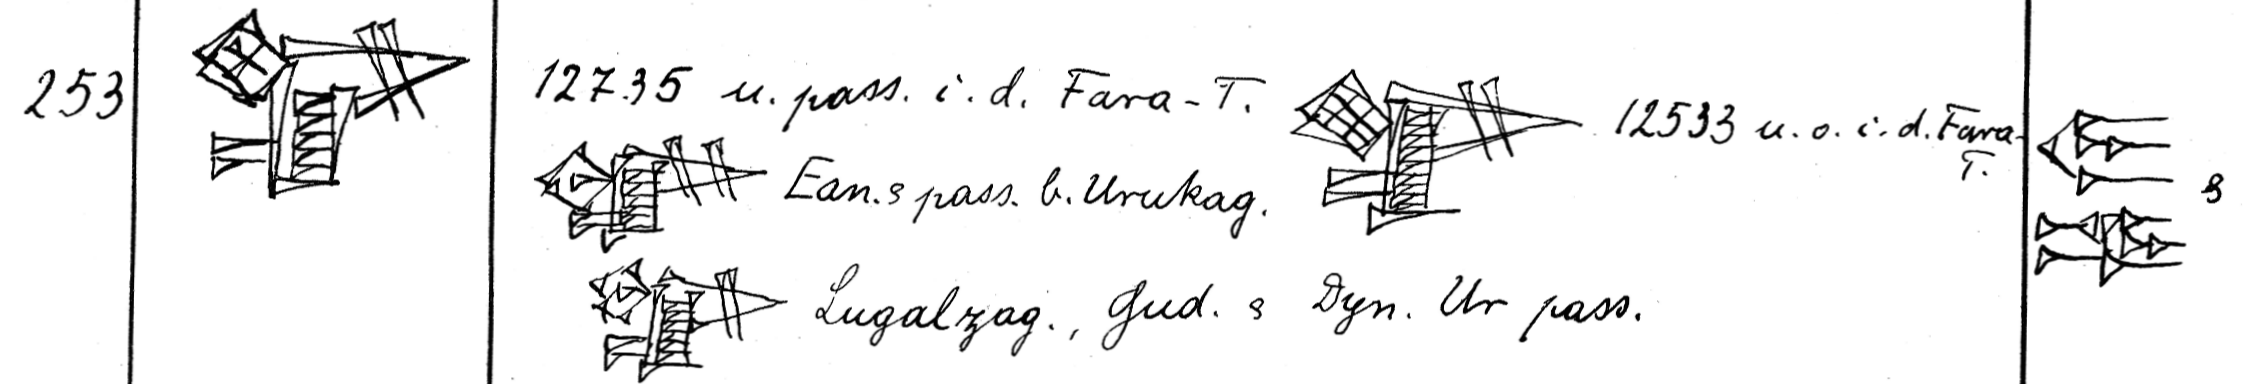 253
12735 u. pass. i. d. Fara-T.
12533 u. o. i. d. Fara-
T.
Ean. s pass. b. Urukag.
s
Lugalzag., Gud. s Dyn. Ur pass.